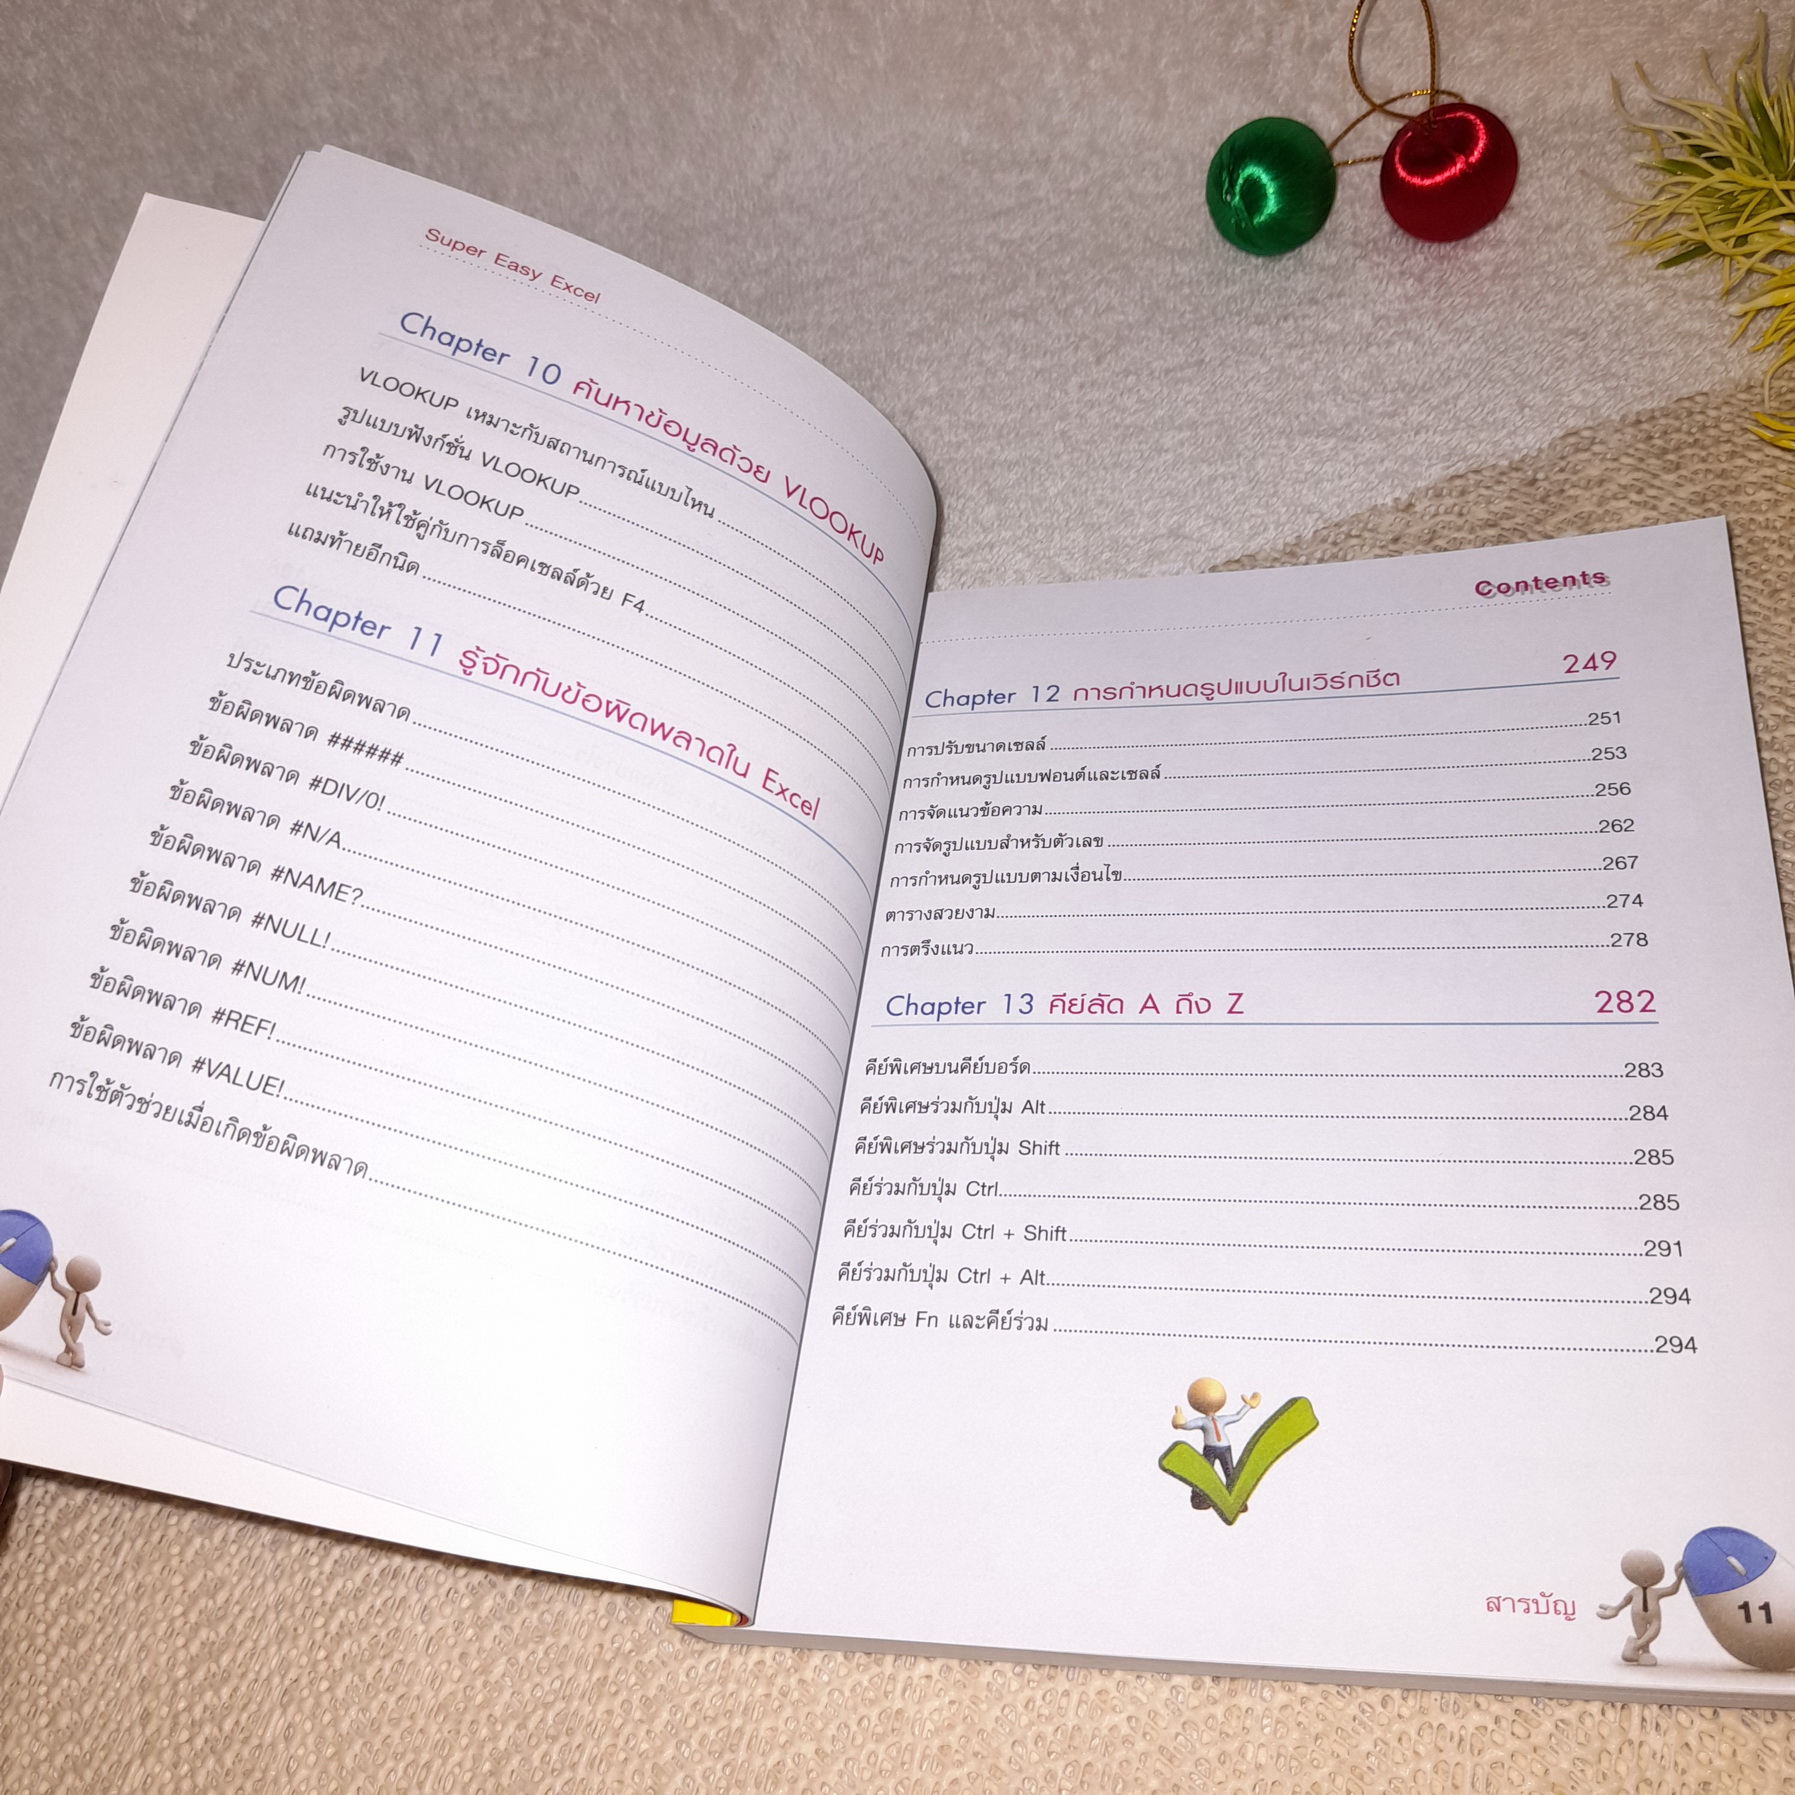 Super Easy Excel
Chapter 10 ค้นหาข้อมูลด้วย VLOOKUP
VLOOKUP เหมาะกับสถานการณ์แบบไหน
รูปแบบฟังก์ชั่น VLOOKUP
การใช้งาน VLOOKUP
แนะนำให้ใช้คู่กับการล็อคเซลล์ด้วย F4
แถมท้ายอีกนิด
Chapter 11 รู้จักกับข้อผิดพลาดใน Excel
ประเภทข้อผิดพลาด
ข้อผิดพลาด ######
ข้อผิดพลาด #DIV/0!
ข้อผิดพลาด #N/A
ข้อผิดพลาด #NAME?
ข้อผิดพลาด #NULL!
ข้อผิดพลาด #NUM!
ข้อผิดพลาด #REF!
ข้อผิดพลาด #VALUE!
การใช้ตัวช่วยเมื่อเกิดข้อผิดพลาด
Contents
Chapter 12 การกำหนดรูปแบบในเวิร์กชีต 249
การปรับขนาดเซลล์ 251
การกำหนดรูปแบบฟอนต์และเซลล์ 253
การจัดแนวข้อความ 256
การจัดรูปแบบสำหรับตัวเลข 262
การกำหนดรูปแบบตามเงื่อนไข 267
ตารางสวยงาม 274
การตรึงแนว 278
Chapter 13 คีย์ลัด A ถึง Z 282
คีย์พิเศษบนคีย์บอร์ด 283
คีย์พิเศษร่วมกับปุ่ม Alt 284
คีย์พิเศษร่วมกับปุ่ม Shift 285
คีย์ร่วมกับปุ่ม Ctrl 285
คีย์ร่วมกับปุ่ม Ctrl + Shift 291
คีย์ร่วมกับปุ่ม Ctrl + Alt 294
คีย์พิเศษ Fn และคีย์ร่วม 294
สารบัญ 11